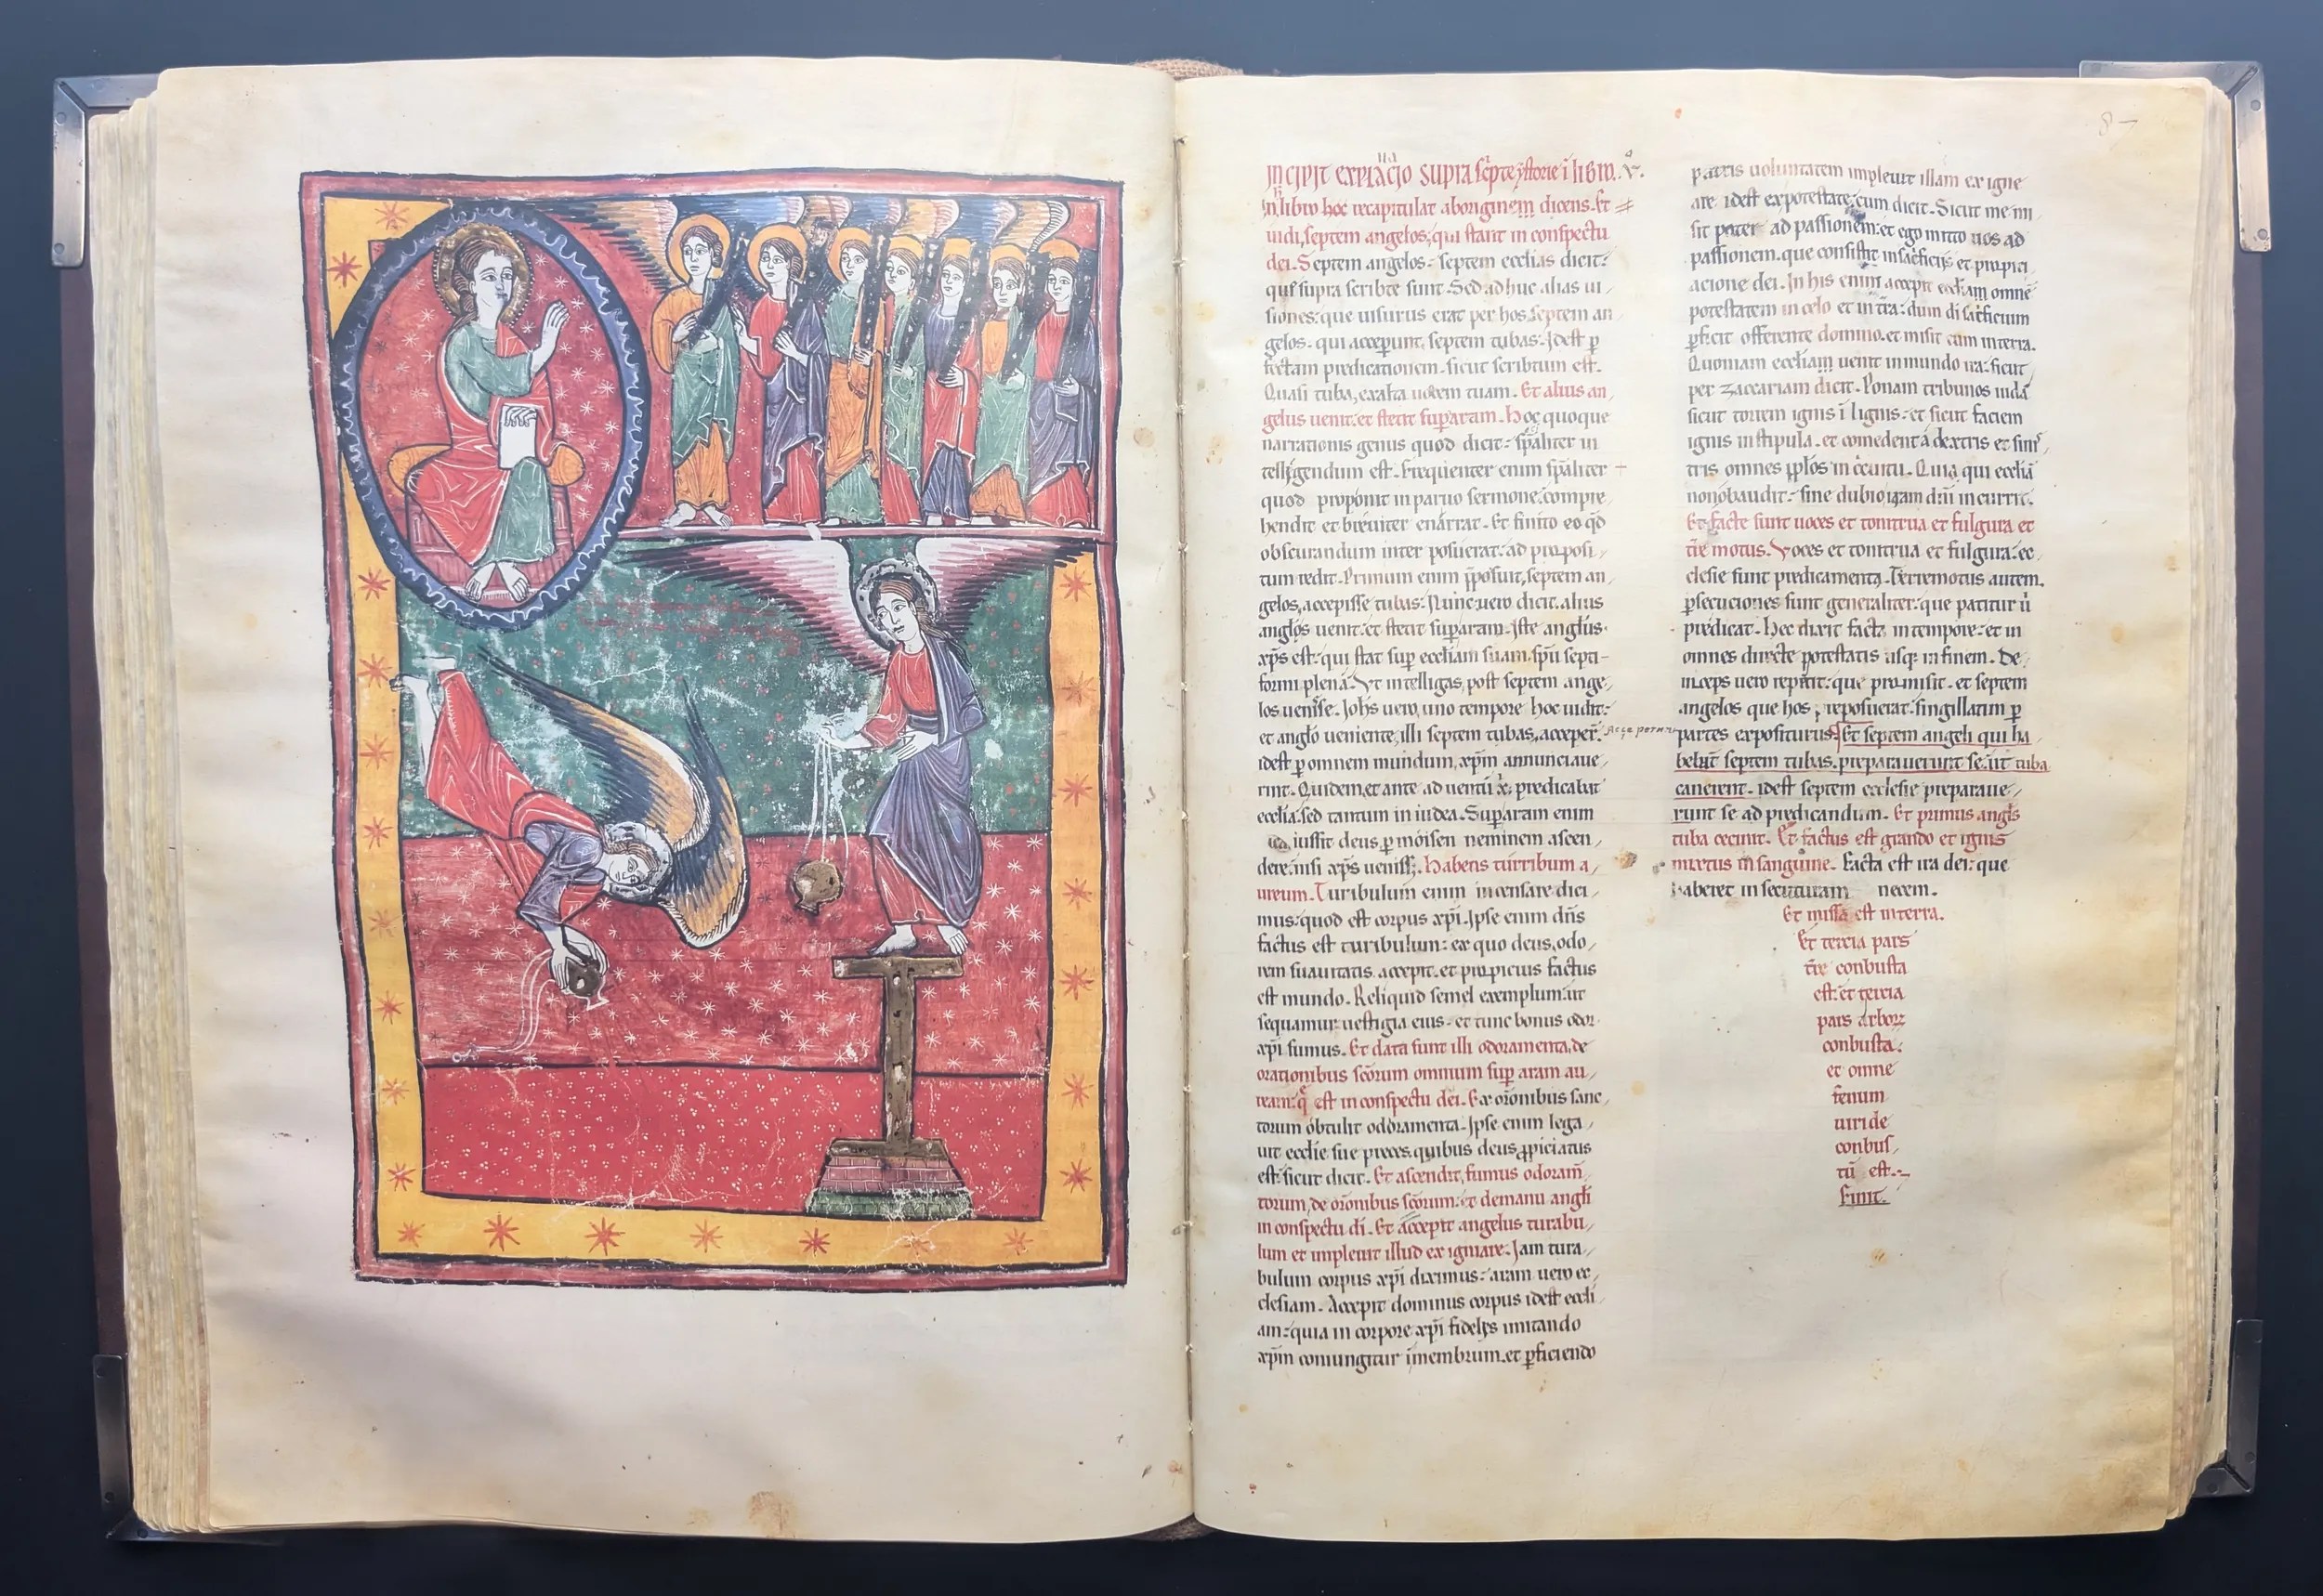 87
Incipit explacio supra scpte ystorie i libro. v.
In libro hoc recapitulat aboriginem dicens. Et
uidi septem angelos, qui stant in conspectu
dei. Septem angelos: septem ecclias dicit:
que supra scribte sunt. Sed ad huc alias ui
siones: que uisurus erat per hos septem an
gelos. qui acceperunt septem tubas. Idest p
fectam predicationem. sicut scribtum est.
Quasi tuba, exalta uocem tuam. Et alius an
gelus uenit. et stetit sup aram. Hoc quoque
narrationis genus quod dicit: spaliter in
telligendum est. Frequenter enim spaliter
quod proponit in paruo sermone compre
hendit et breuiter enarrat. Et finito eo qd
obscurandum inter posuerat. ad proposi
tum redit. Primum enim pposuit, septem an
gelos, accepisse tubas. Nunc uero dicit. alius
anglos uenit. et stetit sup aram. Iste anglus
xps est. qui stat sup eccliam suam. spu septi
formi plena. Vt intelligas, post septem ange
los uenisse. Iohs uero, uno tempore hoc uidit.
et anglo ueniente, illi septem tubas, acceper. acceperunt
idest p omnem mundum, xpm annunciaue
rint. Quidem, et ante ad uentu x: predicabit
ecclia. sed tantum in iudea. Sup aram enim
iussit deus, p moisen neminem ascen
dere. nisi xps uenisset. Habens turribum a
ureum. Turibulum enim incensare dici
mus: quod est corpus xpi. Ipse enim dns
factus est turibulum: ex quo deus, odo
rem suauitatis accepit. et propicius factus
est mundo. Reliquid semel exemplum. ut
sequamur uestigia eius. et tunc bonus odor
xpi sumus. Et data sunt illi odoramenta, de
orationibus scorum omnium sup aram au
ream: q est in conspectu dei. Ex oronibus sanc
torum obtulit odoramenta. Ipse enim lega
uit ecclie sue preces. quibus deus ppiciatus
est. sicut dicit. Et ascendit, fumus odoram
torum, de oronibus scorum. et de manu angli
in conspectu di. Et accepit angelus turabu
lum et impleuit illud ex igni are. Iam tura
bulum corpus xpi diximus: aram uero ec
clesiam. Accepit dominus corpus idest eccli
am: quia in corpore xpi fidelis imitando
xpm coniungitur i membrum. et pficiendo
patris uoluntatem impleuit illam ex igne
are. idest ex potestate, cum dicit. Sicut me mi
sit pater ad passionem: et ego mitto uos ad
passionem. que consistit in sacrficiis et propici
acione dei. In his enim accepit eccliam omne
potestatem in celo et in tra: dum di sacrficium
pficit offerente domino. et misit eam in terra.
Quoniam eccliam uenit in mundo ira: sicut
per zaccariam dicit. Ponam tribunos iuda
sicut torrem ignis i lignis: et sicut faciem
ignis in stipula. et comedent a dextris et sinis
tris omnes pplos in circuitu. Quia qui ecclia
non obaudit: sine dubio iram dni incurrit.
Et facte sunt uoces et tonitrua et fulgura et
tre motus. Voces et tonitrua et fulgura: ec
clesie sunt predicamenta. Terremotus autem.
psecuciones sunt generaliter: que patitur u
predicat. Hec dixit facta in tempore: et in
omnes directe potestatis usq: in finem. De
inceps uero repetit: que promisit. et septem
angelos que hos preposuerat. singillatim p
partes expositurus. Et septem angeli qui ha
bebut septem tubas. preparauerunt se. ut tuba
canerent. idest septem ecclesie preparaue
runt se ad predicandum. Et primus angls
tuba cecinit. Et factus est grando et ignis
mixtus in sanguine. Facta est ira dei: que
haberet in se necem.
Et missa est in terra.
Et tercia pars
tre conbusta
est: et tercia
pars arborz
conbusta.
et omne
fenum
uiride
conbus
tu est.
Finit.